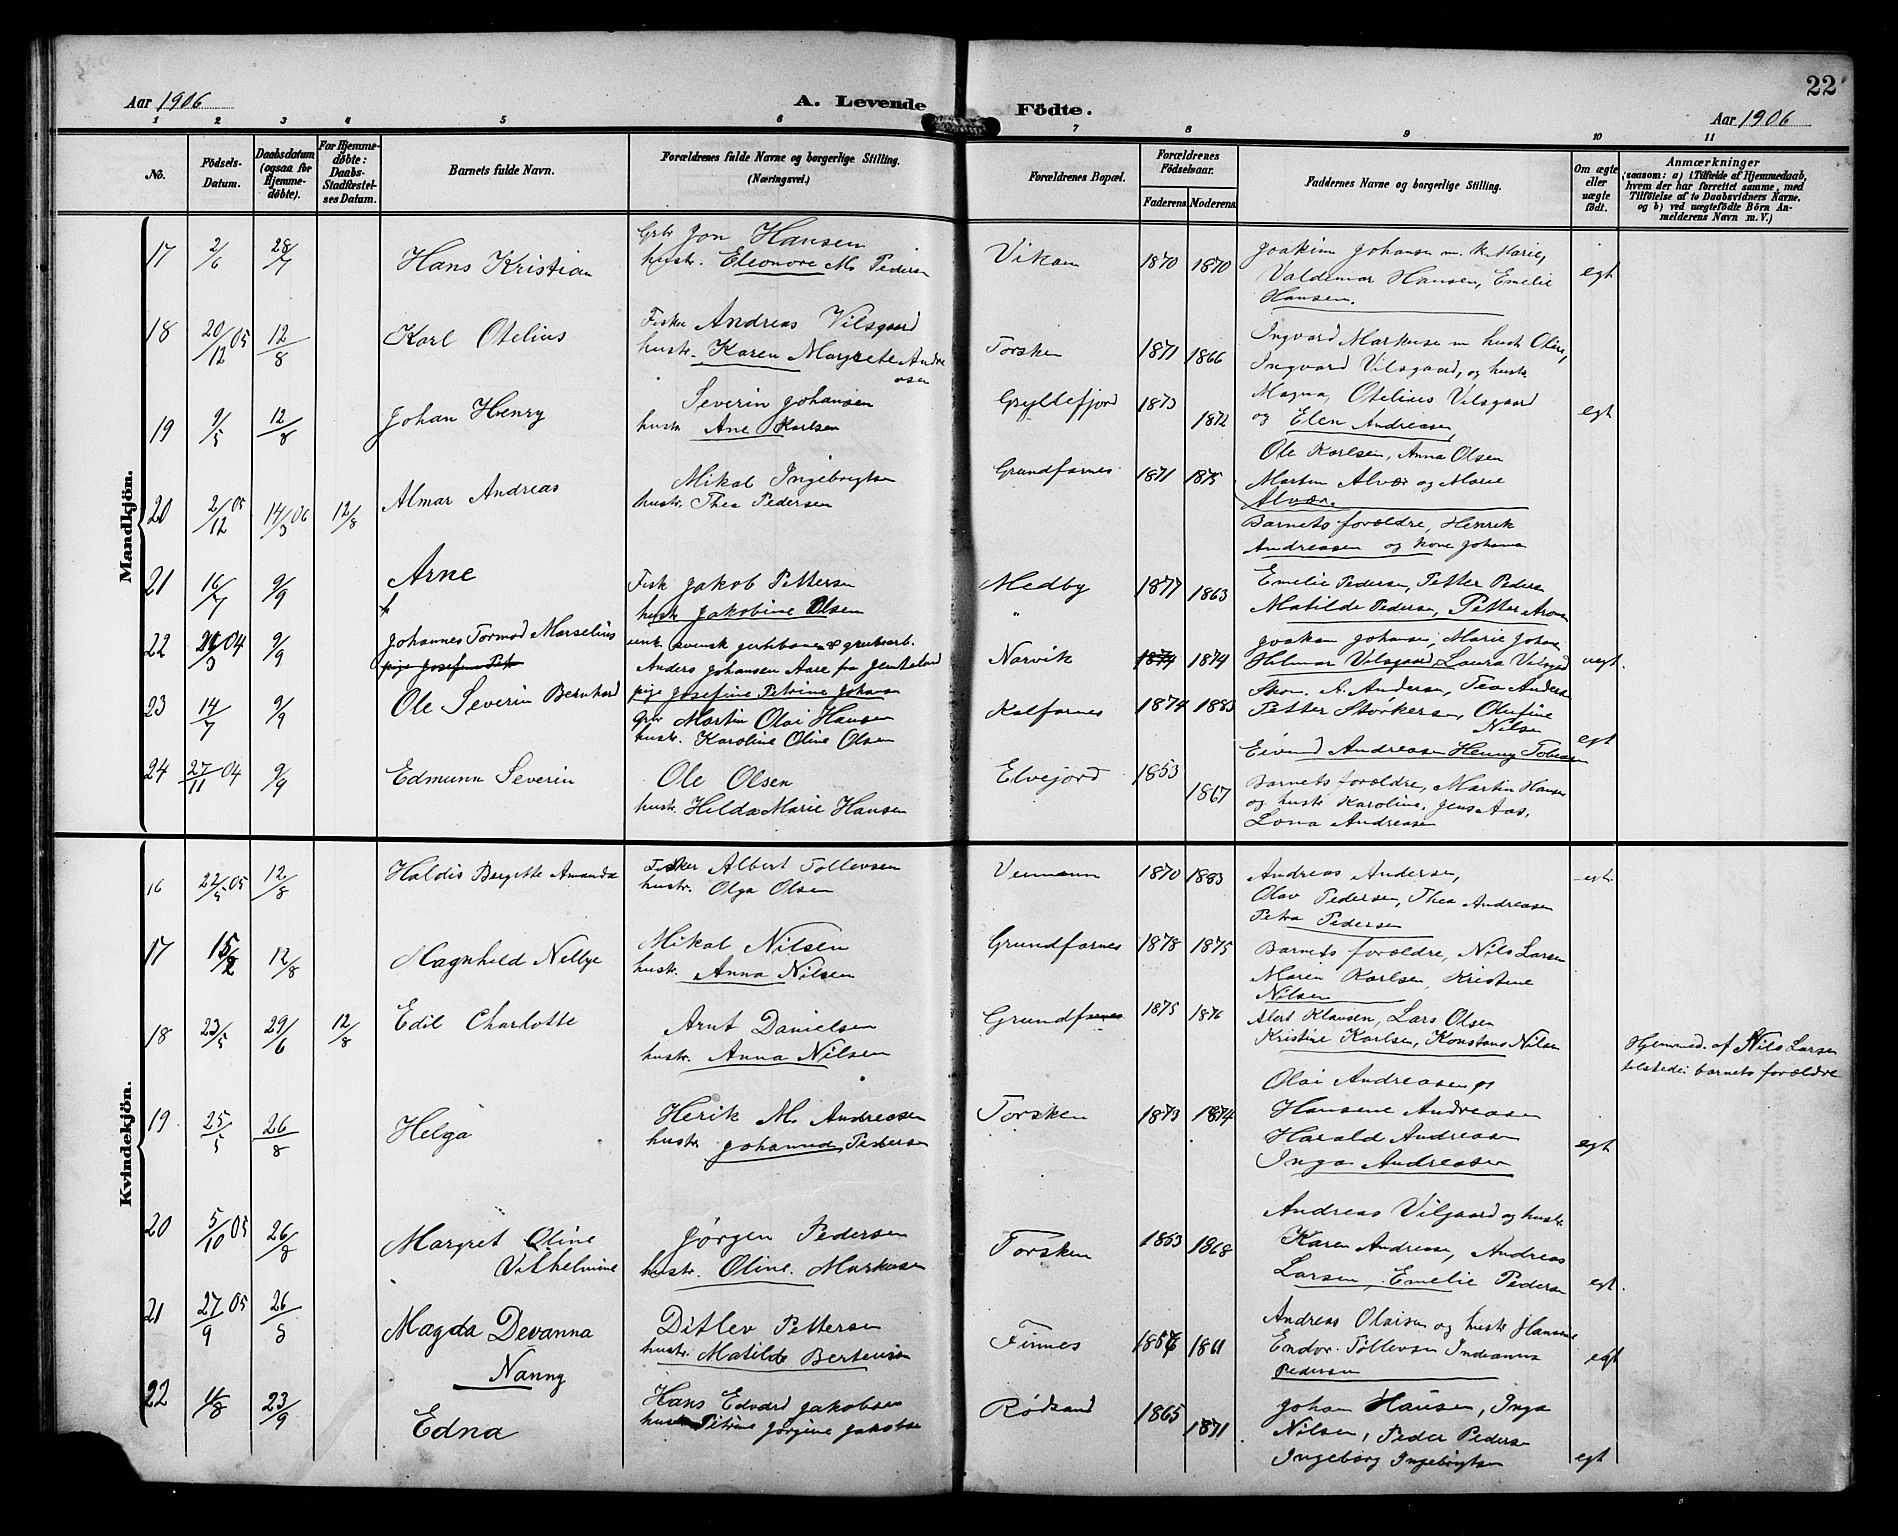 22
Aar 1906
A. Levende Födte.
Aar 1906
1 2 3 4 5 6 7 8 9 10 11
No.
Födsels-
Datum.
Daabsdatum
(ogsaa for
Hjemme-
döbte).
For Hjemme-
döbte:
Daabs-
Stadfæstel-
ses Datum.
Barnets fulde Navn.
Forældrenes fulde Navne og borgerlige Stilling.
(Næringsvei.)
Forældrenes Bopæl.
Forældrenes
Födselsaar.
Faderens. Moderens.
Faddernes Navne og borgerlige Stilling.
Om ægte
eller
uægte
födt.
Anmærkninger
(saasom: a) i Tilfælde af Hjemmedaab,
hvem der har forrettet samme, med
Tilföielse af to Daabsvidners Navne.
og b) ved uægtefödte Börn An-
melderens Navn m. V.)
Mandkjön.
17 2/6 28/7 Hans Kristian
Gbr Jon Hansen
hustr. Eleonore M. Pedersen
Vikan 1870 1870
Joakim Johansen m. k. Marie,
Valdemar Hansen, Emelie
Hansen.
egt
18 20/12 05 12/8 Karl Otelius
Fisker Andreas Vilsgaard
hustr. Karen Margrete Andre
asen
Torsken 1871 1866
Ingvard Markuse m hustr Oline,
Ingvard Vilsgaard, og hustr
Magna, Otelius Vilsgaard
og Elen Andreasen,
egt
19 9/5 12/8 Johan Henry
Severin Johansen
hustr Ane Karlsen
Gryllefjord 1873 1872
Ole Karlsen, Anna Olsen
Martin Alvær og Marie
Alvær.
20 2/12 05 14/3 06 12/8 Almar Andreas
Mikal Ingebrigtsen
hustr. Thea Pedersen
Grundfarnes 1871 1875
Barnets forældre, Henrik
Andreasen og kone Johanna
21 16/7 9/9 Arne
Fisk Jakob Pettersen
hustr Jakobine Olsen
Medby 1877 1863
Emelie Pedersen, Petter Peders
Matilde Pedersen, Petter Arons
22 21/3 04 9/9 Johannes Tormod Marselius
pige Josefine Petr
enk. svensk jernbane & grubearb.
Anders Johansen Aare fra Jemteland
pige Josefine Petrine Johansen
" Narvik 1874 1874
Joakim Johansen, Marie Johan
Hilmar Vilsgaard, Laura Vilsgaard
uegt.
23 14/7 9/9 Ole Severin Bernhard
Gbr Martin Olai Hansen
hustr. Karoline Oline Olsen
Kalfarnes 1874 1883
Skom. A. Andersen, Tea Andersen
Petter Størkersen, Olufine
Nilsen
Eivind Andreasen Henny Tobias
egt
24 27/11 04 9/9 Edmunn Severin
Ole Olsen
hustr Helda Marie Hansen
Elvejord 1853 1867
Barnets forældre, Martin Hansen
og hustr Karoline, Jens Aas,
Lona Andreasen
Kvindekjön.
16 22/5 05 12/8 Haldis Bergitte Amanda
Fisker Albert Tollevsen
hustr. Olga Olsen
1870 1883
Andreas Andersen,
Olav Pedersen, Thea Andreasen
Petra Pedersen
egt.
17 15/2 12/8 Magnhild Nellye
Mikal Nilsen
hustr. Anna Nilsen
Grundfarnes 1878 1875
Barnets forældre, Nils Larsen
Maren Karlsen, Kristine
Nilsen
18 23/5 29/6 12/8 Edil Charlotte
Arnt Danielsen
hustr. Anna Nilsen
Grundfarnes 1875 1876
Alert Klausen, Lars Olsen
Kristine Karlsen, Konstanse Nilsen
Hjemmed. af Nils Larsen
tilstede: barnets forældre
19 25/5 26/8 Helga
Herik M. Andreasen
hustr Johanna Pedersen
Torsken 1873 1874
Olai Andreasen og
Hansene Andreasen
Harald Andreasen
Inga Andreasen
egt
20 5/10 05 26/8 Margret Oline
Vilhelmine
Jørgen Pedersen
hustr. Oline Markusen
Torsken 1863 1868
Andreas Vilgaard og hustr.
Karen Andrease, Andreas
Larsen, Emelie Pedersen
egt
21 27/9 05 26/8 Magda Devanna
Nanny
Ditlev Pettersen
hustr. Matilde Berteusen
Finnes 1856 1861
Andreas Olaisen og hustr Hansine
Endor Tollevsen Indianna
Pedersen
egt
22 11/8 23/9 Edna
Hans Edvard Jakobsen
hustr Petrine Jørgine Jakobsen
Rødsand 1865 1871
Johan Hansen, Inga
Nilsen, Peder Pedersen
Ingeborg Ingebrigtsen
egt